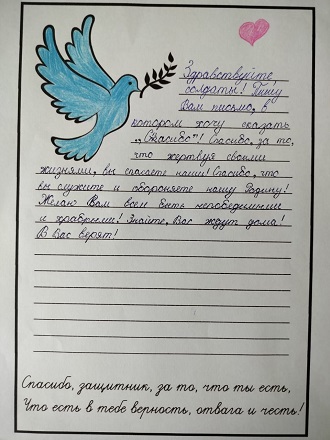 Здравствуйте,
солдаты! Пишу
Вам письмо, в
котором хочу сказать
„Спасибо"! Спасибо, за то,
что жертвуя своими
жизнями, вы спасаете наши! Спасибо, что
вы служите и обороняете нашу Родину!
Желаю Вам всем быть непобедимыми
и храбрыми! Знайте, Вас ждут дома!
В Вас верят!
Спасибо, защитник, за то, что ты есть,
Что есть в тебе верность, отвага и честь!